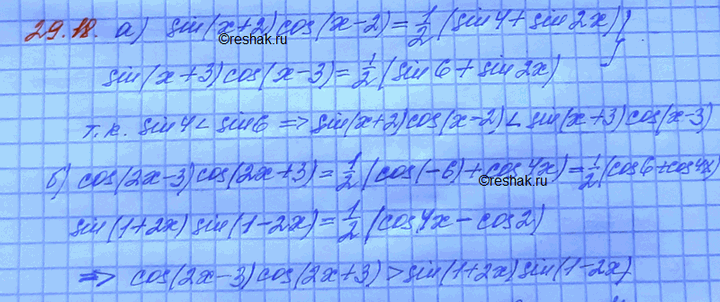 29.18. а) sin(x+2)cos(x-2)=1/2(sin4+sin2x)}
©reshak.ru
sin(x+3)cos(x-3)=1/2(sin6+sin2x)
т.к. sin4<sin6 => sin(x+2)cos(x-2)<sin(x+3)cos(x-3)
б) cos(2x-3)cos(2x+3)=1/2(cos(-6)+cos4x)=1/2(cos6+cos4x)
©reshak.ru
sin(1+2x)sin(1-2x)=1/2(cos4x-cos2)
=> cos(2x-3)cos(2x+3)>sin(1+2x)sin(1-2x)